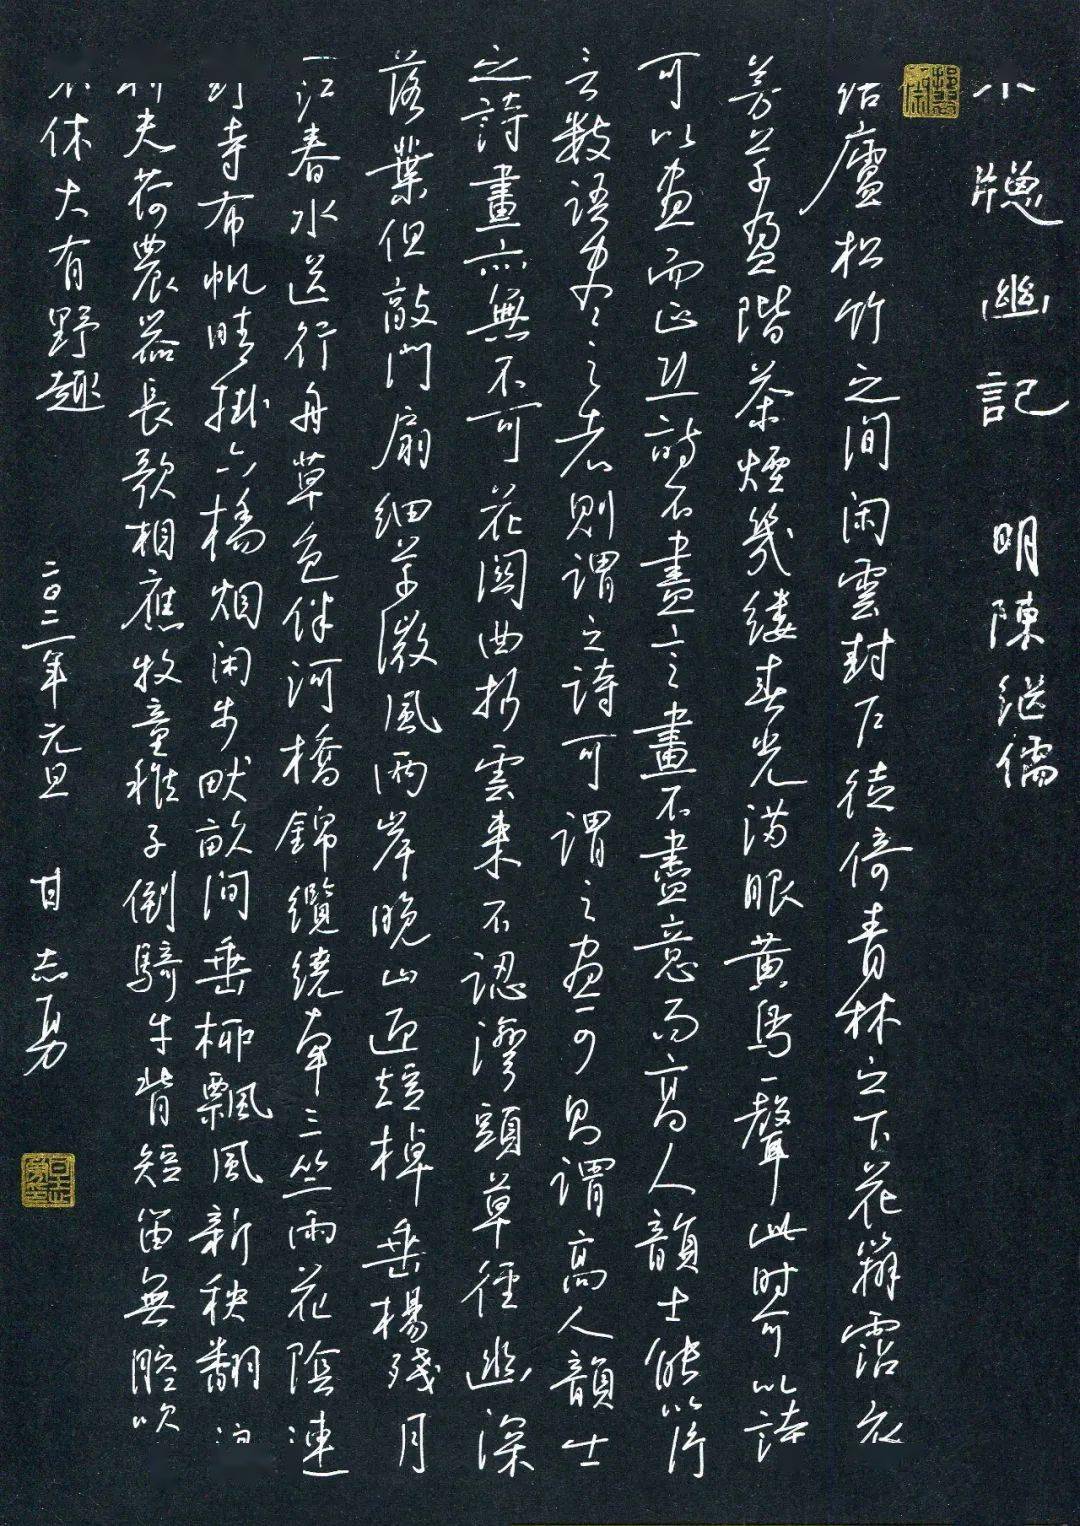 小牕幽記 明陳继儒
结廬松竹之间闲雲封户徒倚青林之下花瓣霑衣
芳草盈階茶煙幾缕春光满眼黄鳥一聲此时可以詩
可以画而正恐詩不盡言畫不盡意而高人韻士能以片
言数语盡之者则谓之詩可谓之画可则谓高人韻士
之詩畫亦無不可花関曲折雲来不認灣頭草徑幽深
落葉但敲門扇细草微風两岸晚山迎短棹垂楊残月
一江春水送行舟草色伴河橋錦纜绕牵三竺雨花陰連
野寺布帆晴掛六橋烟闲步畎畝间垂柳飄風新秧翻浪
耕夫荷農器長歌相應牧童稚子倒騎牛背短笛無腔吹
不休大有野趣 二〇二二年元旦 甘志勇